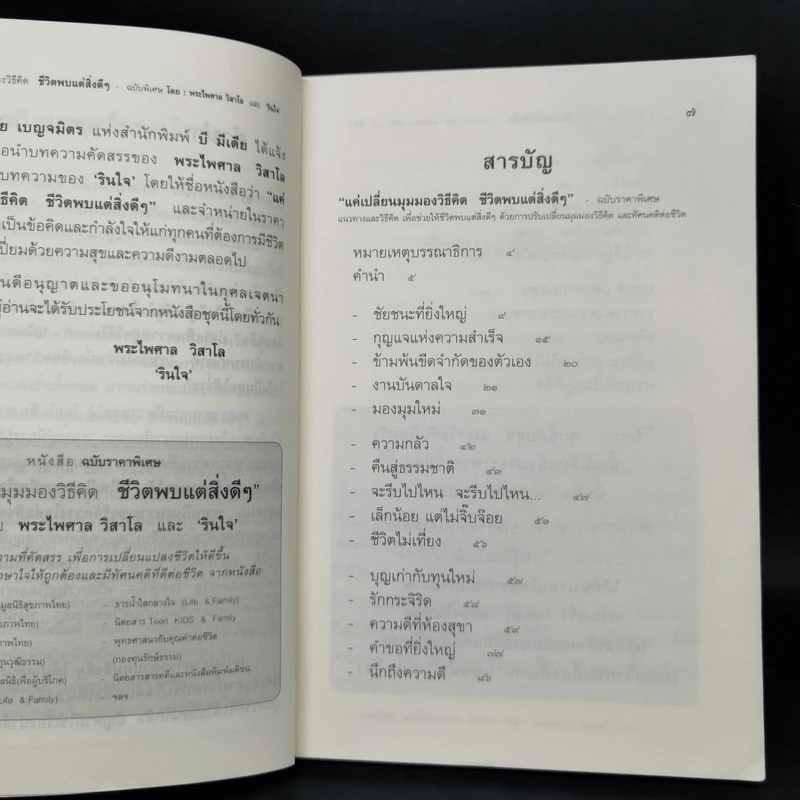 องวิธีคิด ชีวิตพบแต่สิ่งดีๆ - ฉบับพิเศษ โดย : พระไพศาล วิสาโล และ รินใจ
ย เบญจมิตร แห่งสำนักพิมพ์ บี มีเดีย ได้แจ้ง
อนำบทความคัดสรรของ พระไพศาล วิสาโล
บทความของ 'รินใจ' โดยให้ชื่อหนังสือว่า "แค่
ธีคิด ชีวิตพบแต่สิ่งดีๆ" และจำหน่ายในราคา
เป็นข้อคิดและกำลังใจให้แก่ทุกคนที่ต้องการมีชีวิต
เปี่ยมด้วยความสุขและความดีงามตลอดไป
นดีอนุญาตและขออนุโมทนาในกุศลเจตนา
ผู้อ่านจะได้รับประโยชน์จากหนังสือชุดนี้โดยทั่วกัน
พระไพศาล วิสาโล
'รินใจ'
หนังสือ ฉบับราคาพิเศษ
มุมมองวิธีคิด ชีวิตพบแต่สิ่งดีๆ"
ย พระไพศาล วิสาโล และ 'รินใจ'
ความที่คัดสรร เพื่อการเปลี่ยนแปลงชีวิตให้ดีขึ้น
กษาใจให้ถูกต้องและมีทัศนคติที่ดีต่อชีวิต จากหนังสือ
มูลนิธิสุขภาพไทย) - ธารน้ำใสกลางใจ (Life & Family)
ภาพไทย) - นิตยสาร Teen KIDS & Family
าพไทย) - พุทธศาสนากับคุณค่าต่อชีวิต
ทุนวุฒิธรรม) (กองทุนรักษ์ธรรม)
ลนิธิเพื่อผู้บริโภค) - นิตยสารสารคดีและหนังสือพิมพ์มติชน
Life & Family) - ฯลฯ
๗
สารบัญ
"แค่เปลี่ยนมุมมองวิธีคิด ชีวิตพบแต่สิ่งดีๆ" - ฉบับราคาพิเศษ
แนวทางและวิธีคิด เพื่อช่วยให้ชีวิตพบแต่สิ่งดีๆ ด้วยการปรับเปลี่ยนมุมมองวิธีคิด และทัศนคติต่อชีวิต
หมายเหตุบรรณาธิการ ๔
คำนำ ๕
- ชัยชนะที่ยิ่งใหญ่ ๙
- กุญแจแห่งความสำเร็จ ๑๕
- ข้ามพ้นขีดจำกัดของตัวเอง ๒๐
- งานบันดาลใจ ๒๑
- มองมุมใหม่ ๓๑
- ความกลัว ๔๒
- คืนสู่ธรรมชาติ ๔๓
- จะรีบไปไหน จะรีบไปไหน... ๔๗
- เล็กน้อย แต่ไม่จิ๊บจ๊อย ๕๑
- ชีวิตไม่เที่ยง ๕๖
- บุญเก่ากับทุนใหม่ ๕๗
- รักกระจิริด ๕๘
- ความดีที่ห้องสุขา ๕๙
- คำขอที่ยิ่งใหญ่ ๗๗
- นึกถึงความดี ๘๖